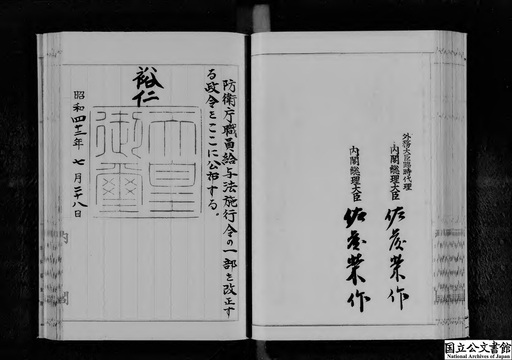 外務大臣臨時代理
内閣総理大臣 佐藤榮作
内閣総理大臣 佐藤榮作
防衛庁職員給与法施行令の一部を改正す
る政令をここに公布する。
裕仁
天皇
御璽
昭和四十三年 七月二十八日
国立公文書館
National Archives of Japan